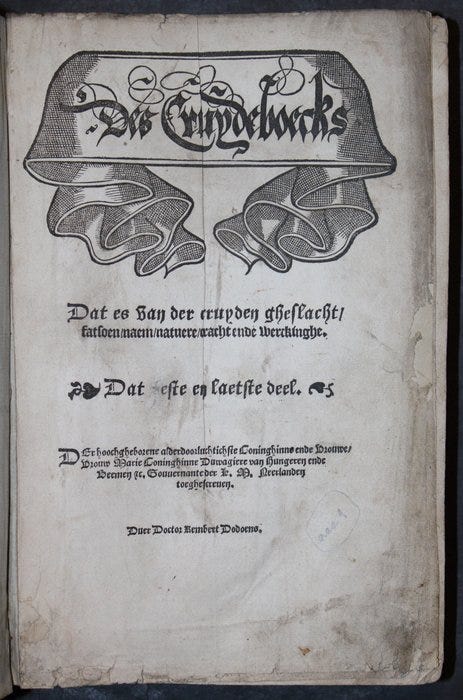 Des Cruydeboecks
Dat es van der cruyden gheslacht/
fatsoen/naem/natuere/cracht ende werckinghe.
Dat este en laetste deel.
DEr hoochgheborene alderdoorluchtichste Coninghinne ende Vrouwe/
Vrouw Marie Coninghinne Duwagiere van Hungeren ende
Beemen &c. Gouvernante der K. M. Neerlanden
toeghescreven.
Duer Doctor Rembert Dodoens.